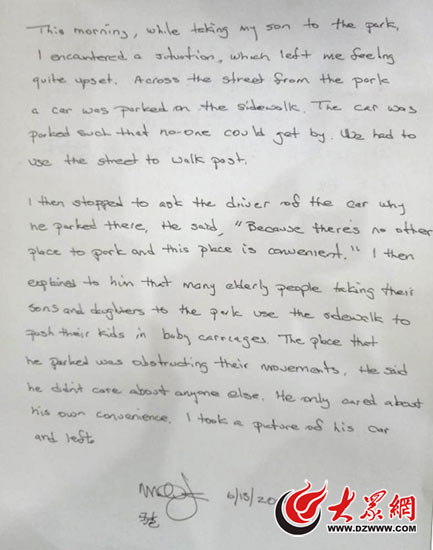 This morning, while taking my son to the park,
I encantered a situation, which left me feelng
quite upset. Across the street from the park
a car was parked on the sidewalk. The car was
parked such that no-one could get by. We had to
use the street to walk past.
I then stopped to ask the driver of the car why
he parked there. He said, "Because there's no other
place to park and this place is convenient." I then
explained to him that many elderly people taking their
sons and daughters to the park use the sidewalk to
push their kids in baby carriages. The place that
he parked was obstructing their movements. He said
he didn't care about anyone else. He only cared about
his own convenience. I took a picture of his car
and left.
6/15/20
大众網
WWW.DZWWW.COM